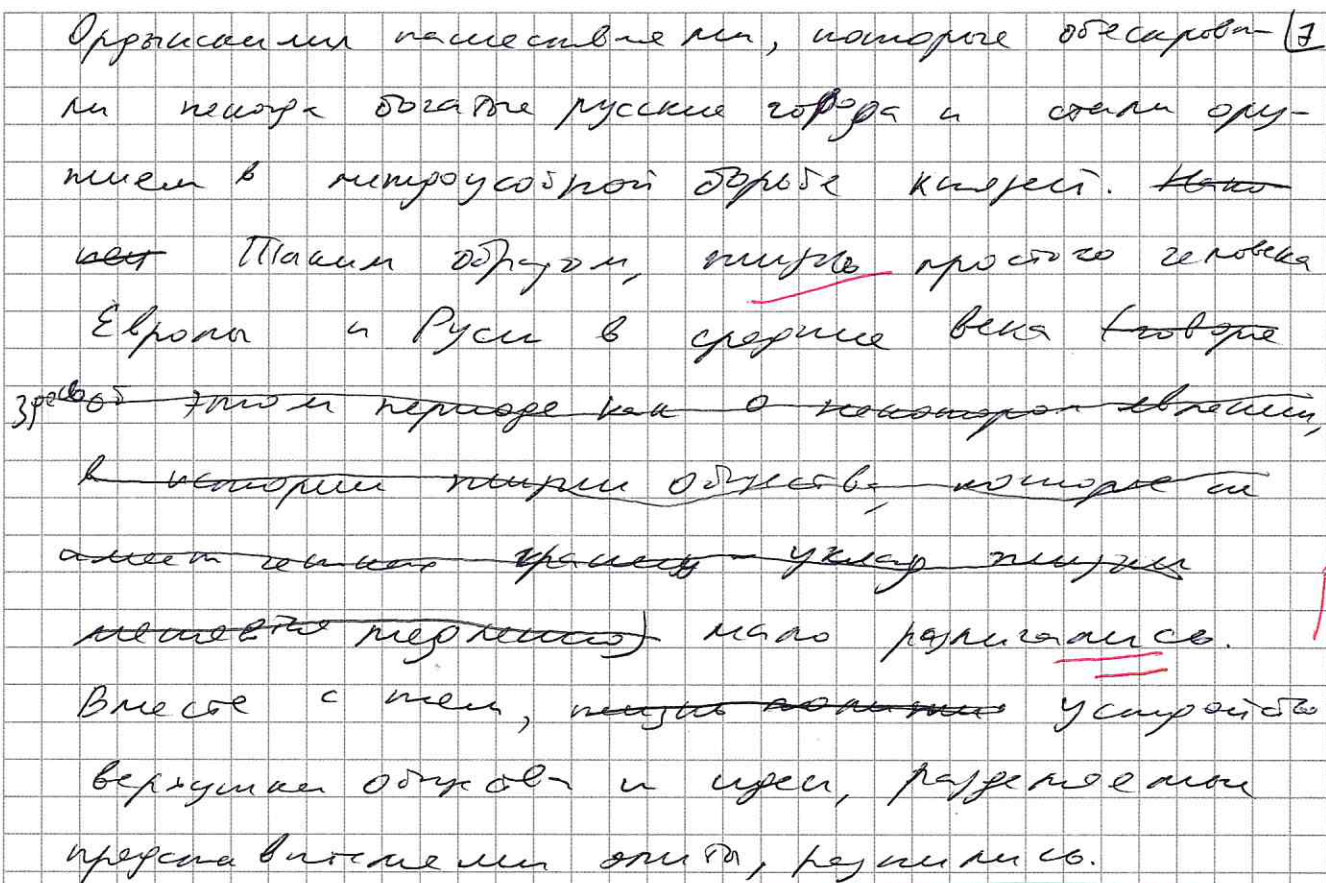 Ордынскими нашествиями, которые обескрова- 7
ли некогда богатые русские города и стали ору-
жием в междоусобной борьбе князей. Нако
нец Таким образом, жизнь простого человека
Европы и Руси в средние века (говоря
здесь об этом периоде как о некотором явлении,
в истории жизни общества, которое не
имеет четких границ уклад жизни
медленно) мало различались.
Вместе с тем, жизнь устройство
верхушки общества и идеи, разделяемые
представителями элиты, разнились.